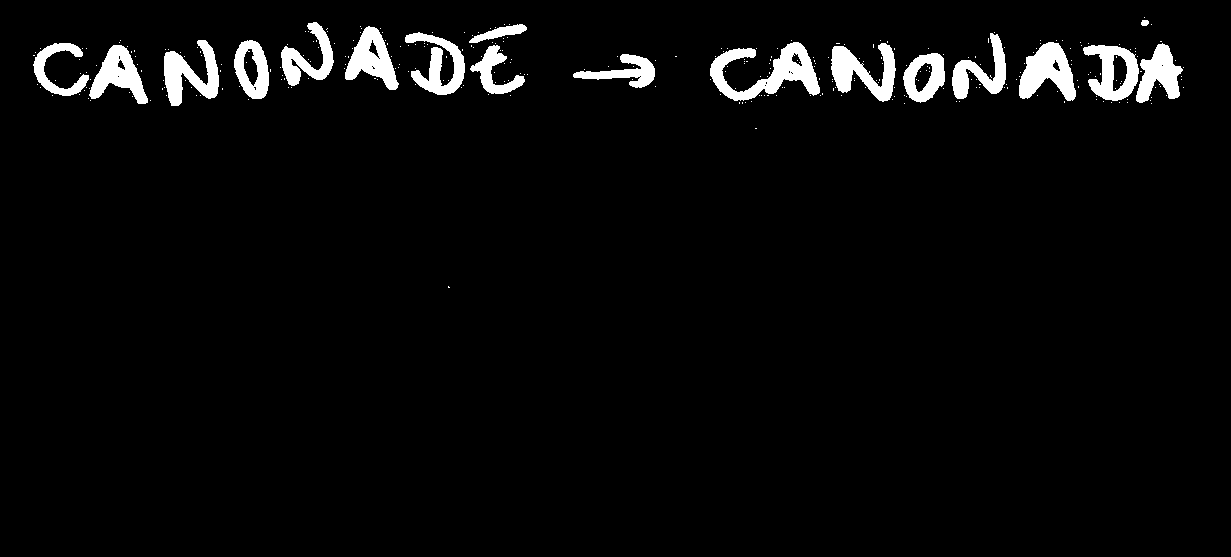 CANONADE → CANONADA